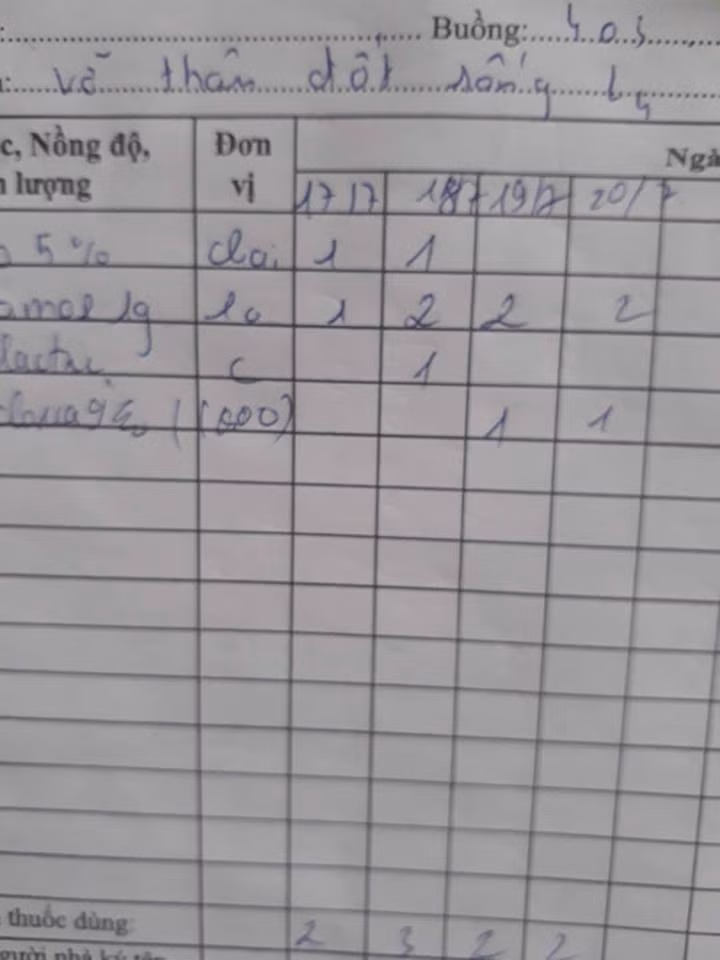 Buồng: 403
vỡ thân đốt sống L4
c, Nồng độ, Đơn Ngà
lượng vị
17/7 18/7 19/7 20/7
5% chai 1 1
amol 1g lọ 1 2 2 2
lactac c 1
(600) 1 1
thuốc dùng: 2 3 2 2